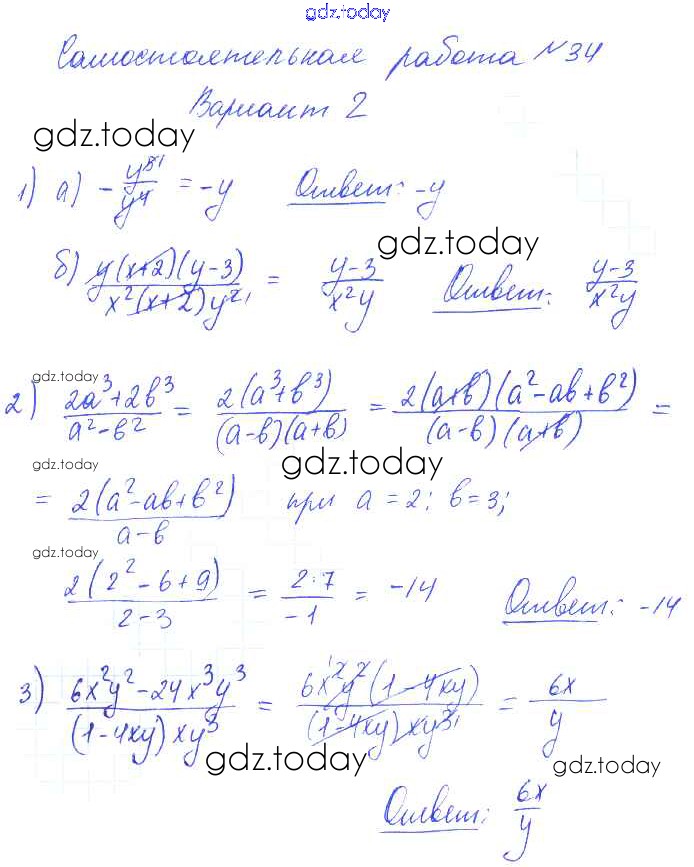 gdz.today
Самостоятельная работа №34
Вариант 2
gdz.today
1) а) -y⁵/y⁴ = -y Ответ: -y
gdz.today
б) y(x+2)(y-3)/x²(x+2)y² = y-3/x²y Ответ: y-3/x²y
gdz.today
2) 2a³+2b³/a²-b² = 2(a³+b³)/(a-b)(a+b) = 2(a+b)(a²-ab+b²)/(a-b)(a+b) =
gdz.today gdz.today
= 2(a²-ab+b²)/a-b при a=2; b=3;
gdz.today
2(2²-6+9)/2-3 = 2·7/-1 = -14 Ответ: -14
3) 6x²y²-24x³y³/(1-4xy)xy³ = 6x²y²(1-4xy)/(1-4xy)xy³ = 6x/y
gdz.today gdz.today
Ответ: 6x/y